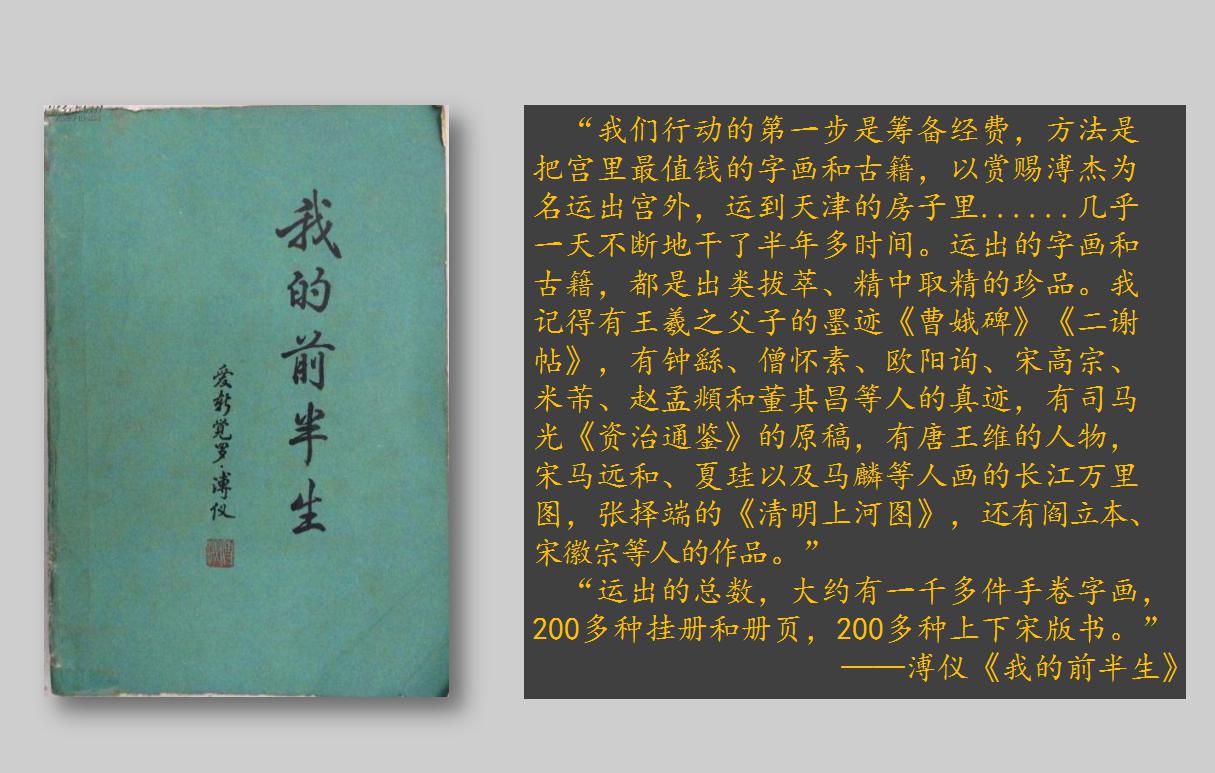 我的前半生
爱新觉罗·溥仪
“我们行动的第一步是筹备经费，方法是
把宫里最值钱的字画和古籍，以赏赐溥杰为
名运出宫外，运到天津的房子里......几乎
一天不断地干了半年多时间。运出的字画和
古籍，都是出类拔萃、精中取精的珍品。我
记得有王羲之父子的墨迹《曹娥碑》《二谢
帖》，有钟繇、僧怀素、欧阳询、宋高宗、
米芾、赵孟頫和董其昌等人的真迹，有司马
光《资治通鉴》的原稿，有唐王维的人物，
宋马远和、夏珪以及马麟等人画的长江万里
图，张择端的《清明上河图》，还有阎立本、
宋徽宗等人的作品。”
“运出的总数，大约有一千多件手卷字画，
200多种挂册和册页，200多种上下宋版书。”
——溥仪《我的前半生》